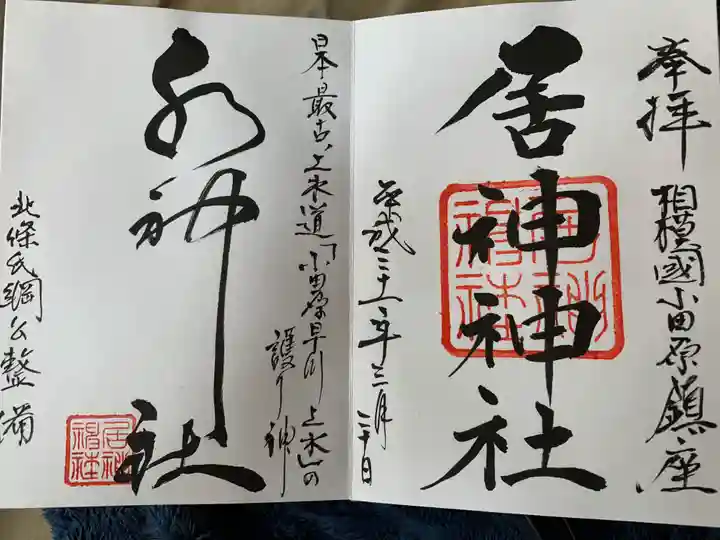 奉拝
相模國小田原鎮座
居神神社
平成三十一年三月二十日
日本最古、上水道「小田原早川上水」の
護り神
水神社
北條氏綱公整備
居神神社